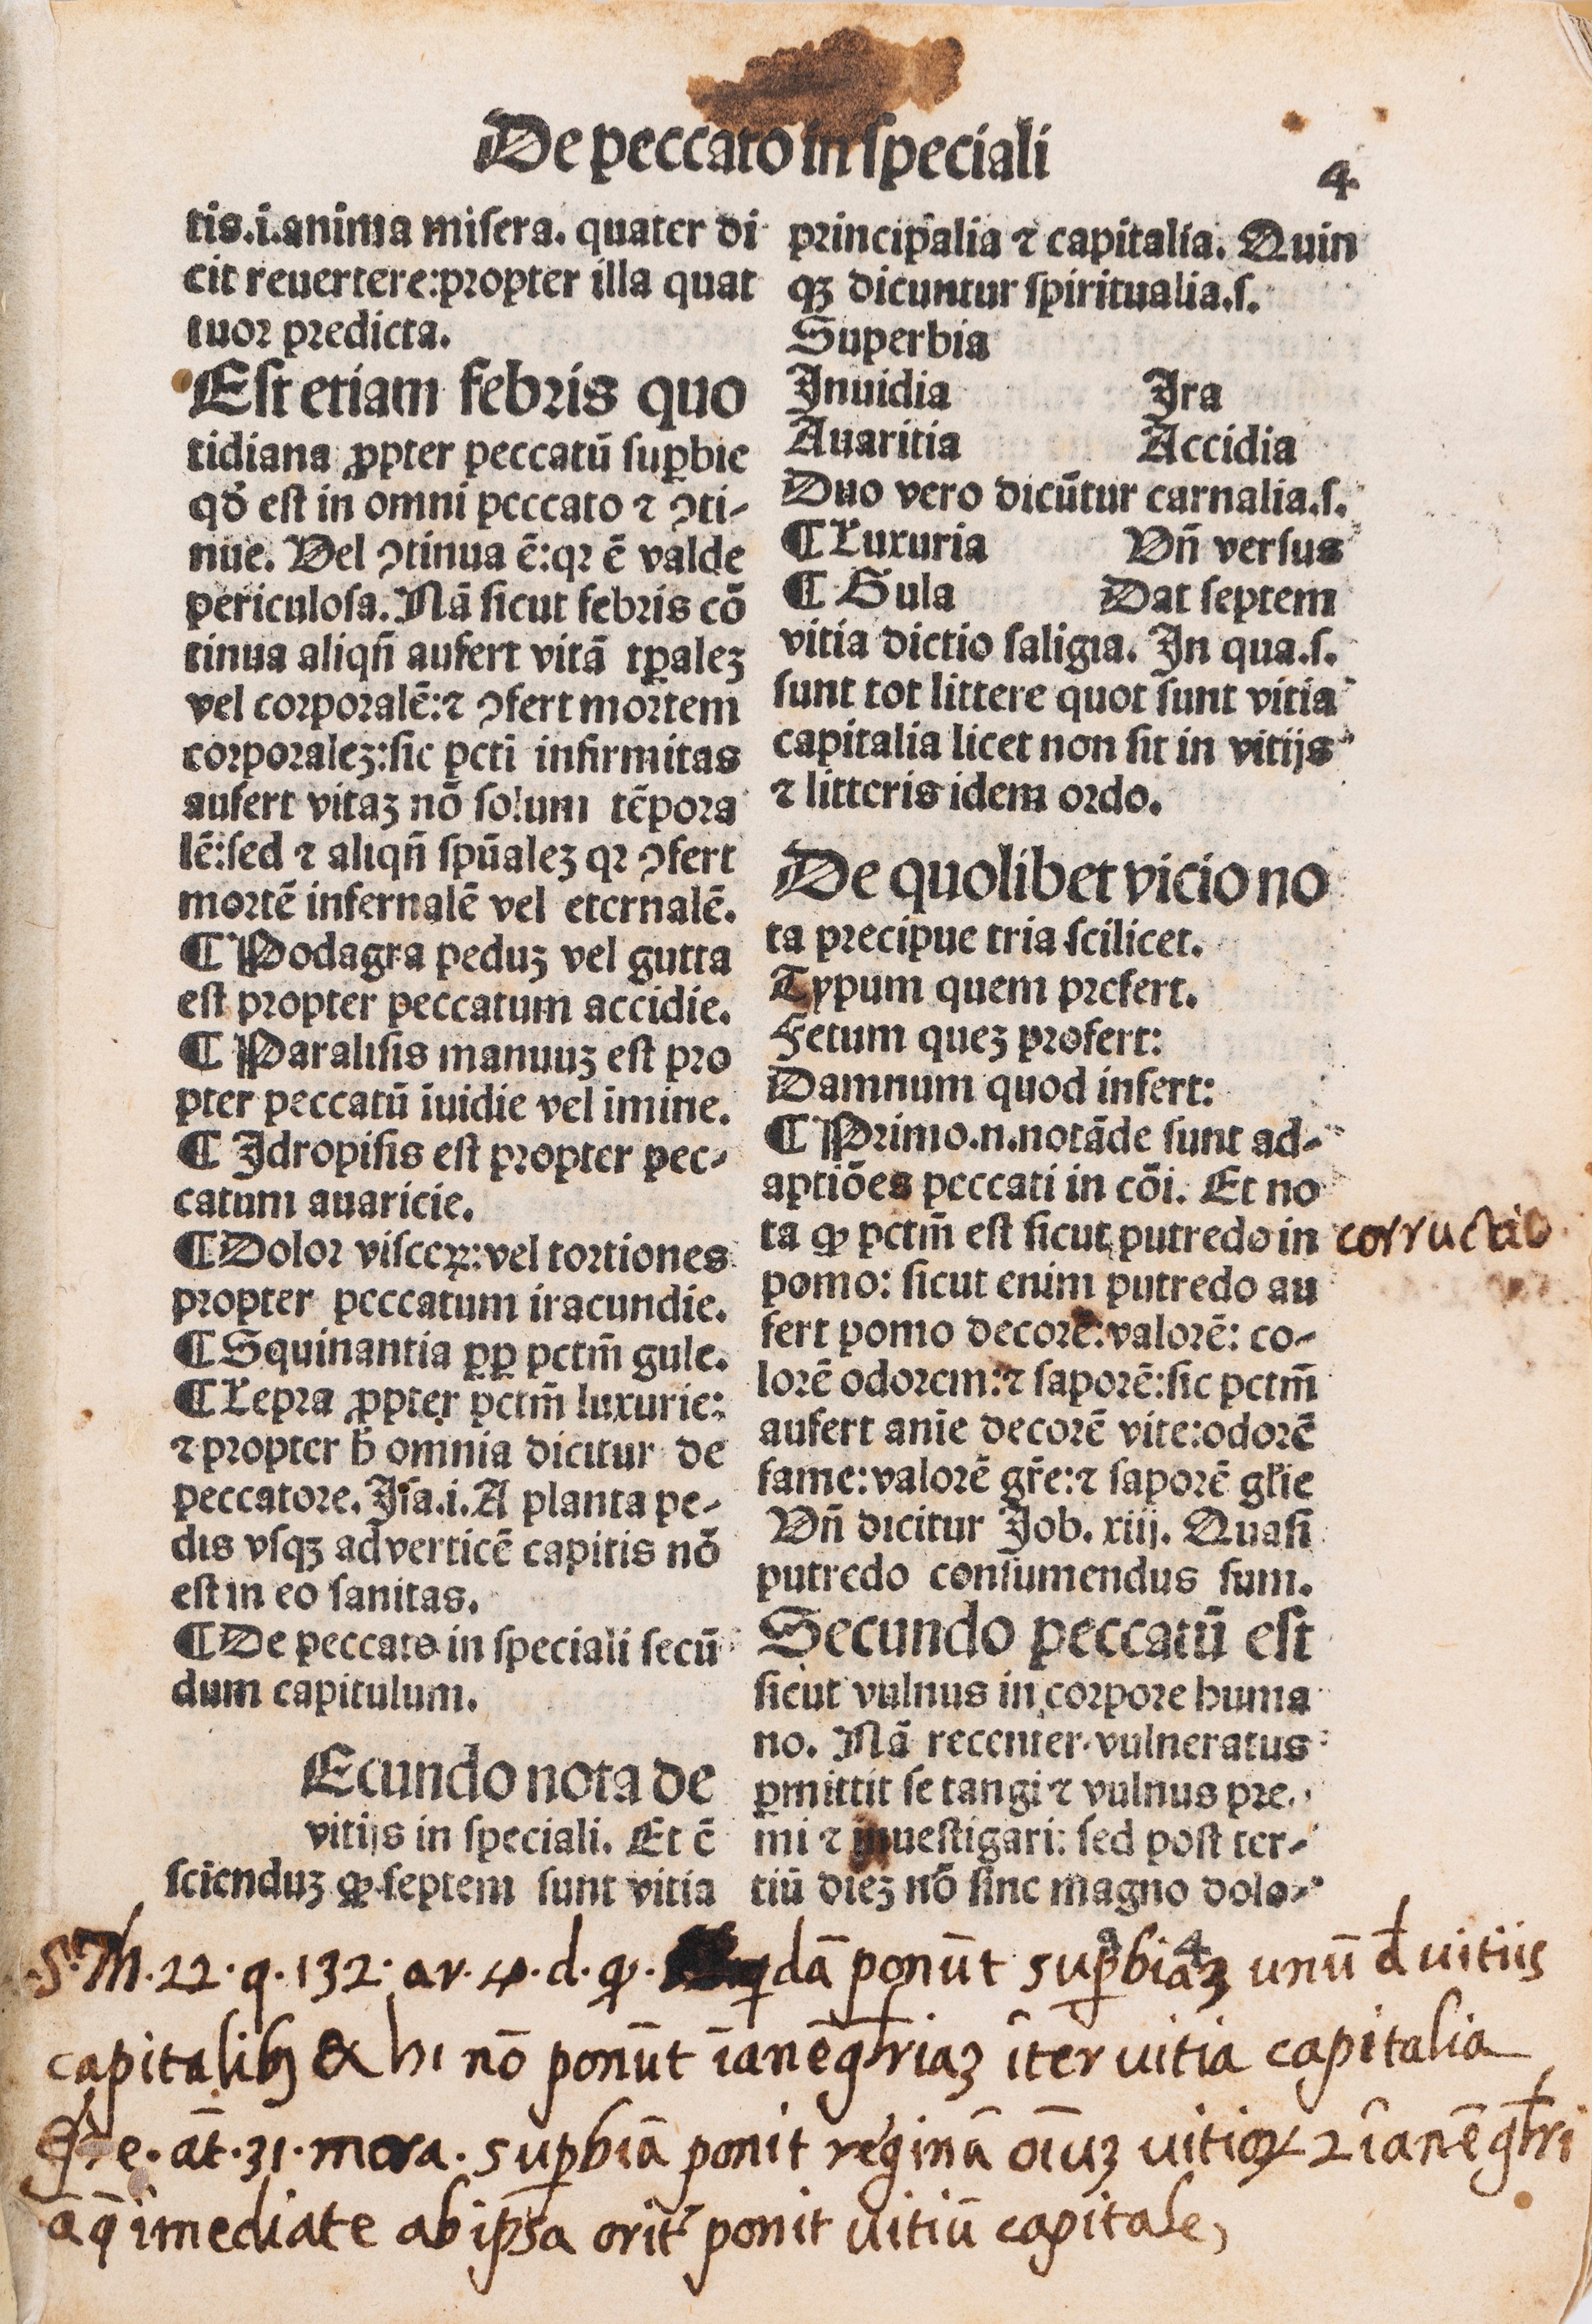 De peccato in speciali
4
tis.i.anima misera. quater di
cit reuertere:propter illa quat
tuor predicta.
Est etiam febris quo
tidiana ꝓpter peccatū suꝑbie
qđ est in omni peccato ⁊ ꝯti-
nue. Vel ꝯtinua ē:qꝛ ē valde
periculosa. Nā sicut febris cō
tinua aliqñ aufert vitā tꝑaleꝫ
vel corporalē:⁊ ꝯfert mortem
corporaleꝫ:sic pcti infirmitas
aufert vitaꝫ nō solum tēpora
lē:sed ⁊ aliqñ spūaleꝫ qꝛ ꝯfert
mortē infernalē vel eternalē.
¶ Podagra peduꝫ vel gutta
est propter peccatum accidie.
¶ Paralisis manuuꝫ est pro
pter peccatū īuidie vel imine.
¶ Idropisis est propter pec-
catum auaricie.
¶ Dolor visceꝝ:vel tortiones
propter peccatum iracundie.
¶ Squinantia ꝓꝑ pctm̄ gule.
¶ Lepra ꝓpter pctm̄ luxurie:
⁊ propter h̄ omnia dicitur de
peccatore. Isa.i. A planta pe-
dis vsqꝫ ad verticē capitis nō
est in eo sanitas.
¶ De peccato in speciali secū
dum capitulum.
Ecundo nota de
vitijs in speciali. Et ē
scienduꝫ ꝙ septem sunt vitia
principalia ⁊ capitalia. Quin
qꝫ dicuntur spiritualia.s.
Superbia
Inuidia Ira
Auaritia Accidia
Duo vero dicūtur carnalia.s.
¶ Luxuria Vñ versus
¶ Gula Dat septem
vitia dictio saligia. In qua.s.
sunt tot littere quot sunt vitia
capitalia licet non sit in vitijs
⁊ litteris idem ordo.
De quolibet vicio no
ta precipue tria scilicet.
Typum quem prefert.
Fetum queꝫ profert:
Damnum quod infert:
¶ Primo.n.notāde sunt ad-
aptiōes peccati in cōi. Et no
ta ꝙ pctm̄ est sicut putredo in
corructio
pomo: sicut enim putredo au
fert pomo decorē:valorē: co-
lorē odorem:⁊ saporē:sic pctm̄
aufert anīe decorē vite:odorē
fame:valorē gr̄e:⁊ saporē gl̄ie
Vñ dicitur Job. xiij. Quasi
putredo consumendus sum.
Secundo peccatū est
sicut vulnus in corpore huma
no. Nā recenter vulneratus
ꝑmittit se tangi ⁊ vulnus pre.
mi ⁊ inuestigari: sed post ter-
tiū dieꝫ nō sine magno dolo-
a 4
.S.Th.22.q.132.ar.4.d.ꝙ. dā ponūt suꝑbiāꝫ unū đ uitiis
capitalibꝫ & hi nō ponūt īanē gl̄riaꝫ īter uitia capitalia
āt.31.mora.suꝑbiā ponit reginā oīuꝫ uitioꝝ ⁊ īanē gl̄ri
ā q̄ īmediate ab ip̄sa orit' ponit uitiū capitale,